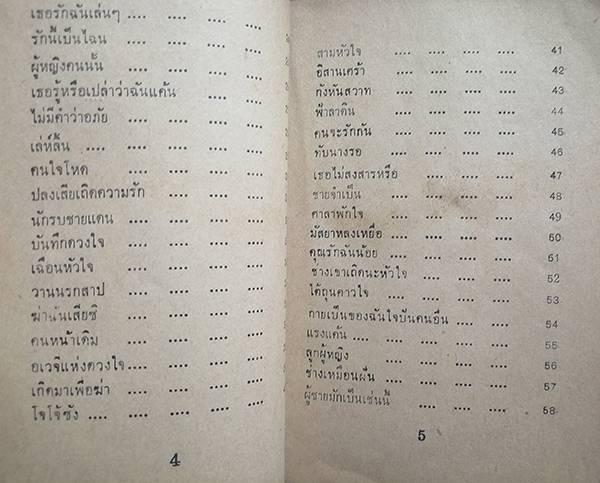 เธอรักฉันเล่นๆ .... .... ....
รักนี้เป็นไฉน .... .... ....
ผู้หญิงคนนั้น .... .... ....
เธอรู้หรือเปล่าว่าฉันแค้น .... ....
ไม่มีคำว่าอภัย .... .... ....
เล่ห์ลิ้น .... .... .... ....
คนใจโหด .... .... .... ....
ปลงเสียเถิดความรัก .... .... ....
นักรบชายแดน .... .... .... ....
บันทึกดวงใจ .... .... .... ....
เฉือนหัวใจ .... .... .... ....
วานนรกสาป .... .... .... ....
ฆ่าฉันเสียซิ .... .... .... ....
คนหน้าเดิม .... .... .... ....
อเวจีแห่งดวงใจ .... .... ....
เกิดมาเพื่อฆ่า .... .... ....
โจโจ้ซัง .... .... .... ....
4
สามหัวใจ .... .... .... .... 41
อิสานเศร้า .... .... .... .... 42
กังหันสวาท .... .... .... .... 43
ฟ้าลาดิน .... .... .... .... 44
คนจะรักกัน .... .... .... .... 45
ทับนางรอ .... .... .... .... 46
เธอไม่สงสารหรือ .... .... .... 47
ชายจำเป็น .... .... .... .... 48
ศาลาพักใจ .... .... .... .... 49
มัสยาหลงเหยื่อ .... .... .... .... 50
คุณรักฉันน้อย .... .... .... .... 51
ช่างเขาเถิดนะหัวใจ .... .... .... 52
ใต้ถุนดาวใจ .... .... .... .... 53
กายเป็นของฉันใจปันคนอื่น .... .... .... 54
แรงแค้น .... .... .... .... 55
ลูกผู้หญิง .... .... .... .... 56
ช่างเหมือนฝัน .... .... .... .... 57
ผู้ชายมักเป็นเช่นนี้ .... .... .... 58
5